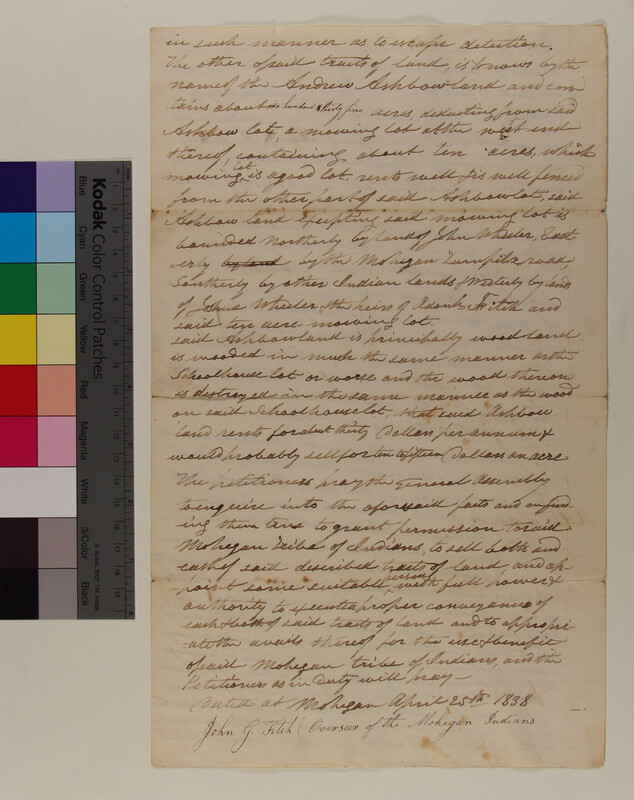 in such manner as to escape detection.
The other of said tracts of land, is known by the
name of the Andrew Ashbow land and con
tains about one hundred & thirty five acres, deducting from said
Ashbow lot, a mowing lot at the west end
thereof, containing about ten acres, which
mowing lot is a good lot, rents well & is well fenced
from the other part of said Ashbow lot, said
Ashbow land excepting said mowing lot is
bounded Northerly by land of John Wheeler, East
erly by land by the Mohegan Turnpike road,
Southerly by other Indian lands & Westerly by land
of Joshua Wheeler & the heirs of Fitch and
said ten acre mowing lot.
said Ashbow land is principally wood land
is wooded in much the same manner as the
Schoolhouse lot or worse and the wood thereon
is destroyed in the same manner as the wood
on said Schoolhouse lot, that said Ashbow
land rents for about thirty Dollars per annum &
would probably sell for ten to fifteen Dollars an acre
The petitioners pray the General Assembly
to enquire into the aforesaid facts and on find
ing them true to grant permission to said
Mohegan tribe of Indians, to sell both and
each of said described tracts of land and ap
point some suitable person with full power &
authority to execute proper conveyances of
each & both of said tracts of land and to appropri
-ate the avails thereof for the use & benefit
of said Mohegan tribe of Indians, and the
Petitioners as in Duty will pray—
Dated at Mohegan April 25th 1838
John G. Fitch Overseer of the Mohegan Indians
Kodak Color Control Patches
Blue
Cyan
Green
Yellow
Red
Magenta
White
3/Color
Black